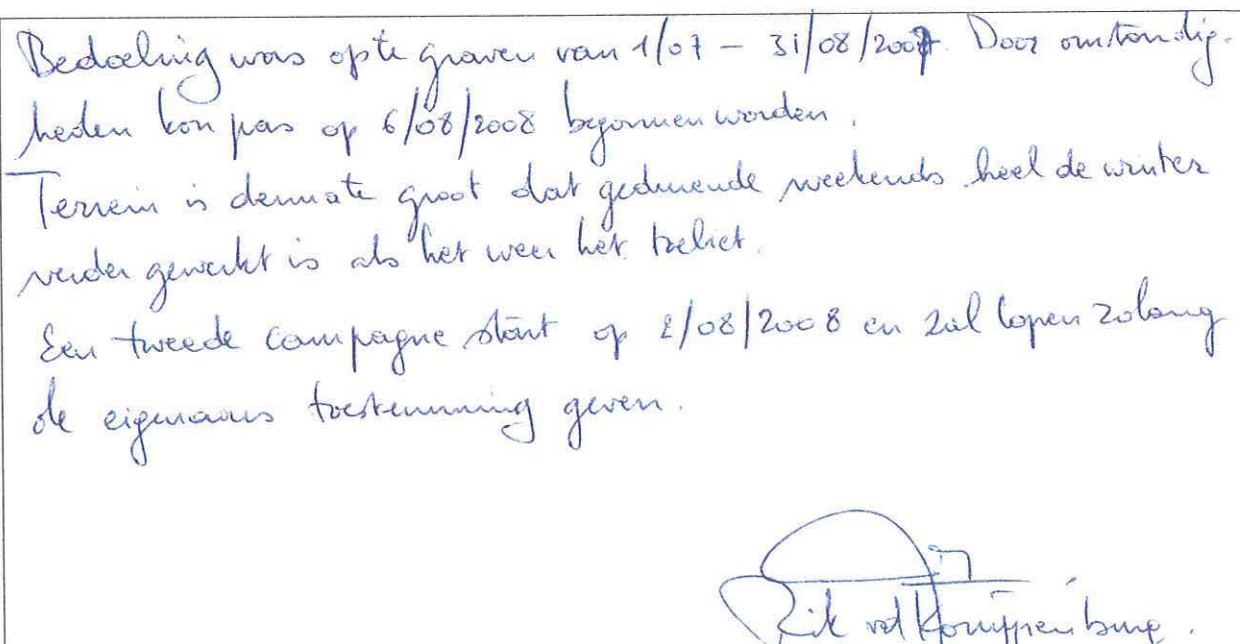 Bedoeling was op te graven van 1/07 – 31/08/2007. Door omstandig-
heden kon pas op 6/08/2008 begonnen worden.
Terrein is dermate groot dat gedurende weekends heel de winter
verder gewerkt is als het weer het toeliet.
Een tweede campagne start op 2/08/2008 en zal lopen zolang
de eigenaars toestemming geven.
Rik vd